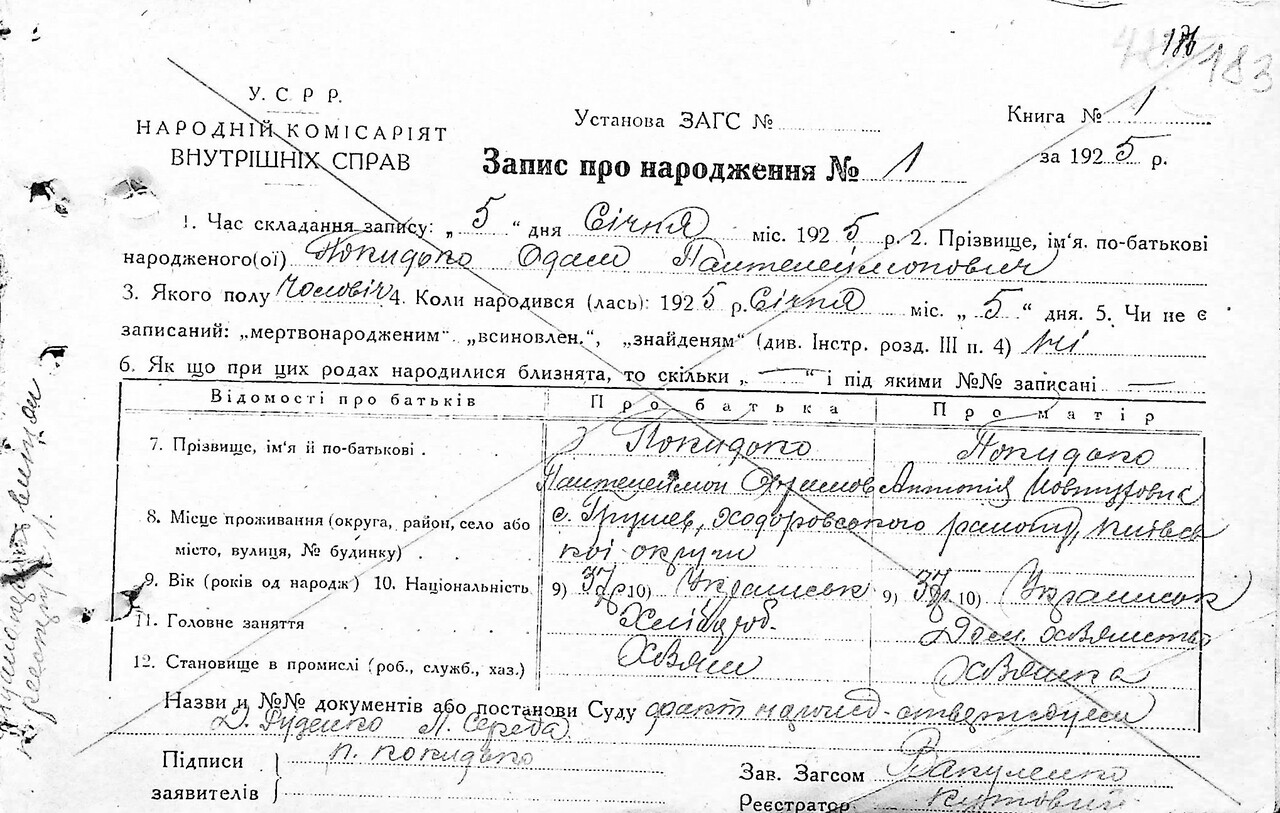 186
183
У. С. Р. Р.
НАРОДНІЙ КОМІСАРІЯТ
ВНУТРІШНІХ СПРАВ
Установа ЗАГС №
Книга № 1
за 1925 р.
Запис про народження № 1
1. Час складання запису: „ 5 “ дня Січня міс. 1925 р. 2. Прізвище, ім'я. по-батькові
народженого(ої) Покидько Одам Пантелеймонович
3. Якого полу Чоловіч 4. Коли народився (лась): 1925 р. Січня міс. „ 5 “ дня. 5. Чи не є
записаний: „мертвонародженим“. „всиновлен.“, „знайденям“ (див. Інстр. розд. III п. 4) ні
6. Як що при цих родах народилися близнята, то скільки „ — “ і під якими №№ записані —
Відомості про батьків Про батька Про матір
7. Прізвище, ім'я й по-батькові . Покидько Покидько
Пантелеймон Антонія
8. Місце проживання (округа, район, село або с. Грушев, Ходоровського району, Київсь
місто, вулиця, № будинку) . . кої округи
9. Вік (років од народж) 10. Національність 9) 37р 10) Українськ 9) 37р 10) Українськ
11. Головне заняття Хлібороб. Дом. хозяйство
12. Становище в промислі (роб., служб., хаз.) Хозяїн Хозяйка
Назви и №№ документів або постанови Суду факт народ.
Д. Руденко Л. Середа
Підписи
заявителів
П. Покидько
Зав. Загсом Вакуленко
Реєстратор Кутовий